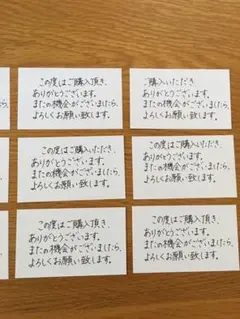 この度はご購入頂き、
ありがとうございます。
またの機会がございましたら、
よろしくお願い致します。
ご購入いただき、
ありがとうございます。
またの機会がございましたら、
よろしくお願い致します。
この度はご購入いただき、
ありがとうございます。
またの機会がございましたら、
よろしくお願い致します。
この度はご購入頂き、
ありがとうございます。
またの機会がございましたら、
よろしくお願い致します。
この度はご購入頂き、
ありがとうございます。
またの機会がございましたら、
よろしくお願い致します。
この度はご購入頂き、
ありがとうございます。
またの機会がございましたら、
よろしくお願い致します。